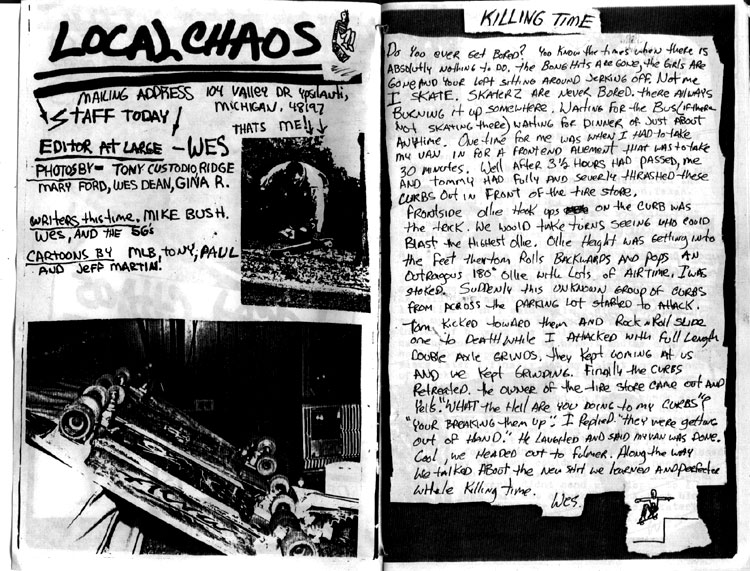 LOCAL CHAOS
MAKING ADDRESS 104 VAlley DR YPSilANTi,
MICHIGAN. 48197
STAFF TODAY!
THATS ME!!
EDITOR AT LARGE - WES
PHOTOS BY - TONY CUSTODIO, RIDGE
MARY FORD, WES DEAN, GINA R.
WRITERS this time. MIKE BUSH.
Wes, AND the 5G's
CARTOONS BY MLB, TONY, PAUL
AND JEFF MARTIN!
KILLING TIME
Do You ever get Bored? You know the times when there is
ABSOlutly Nothing to DO. the BONG HitS ARe gONe, the GIRLS ARe
GONe AND YOUR Left Sitting AROUND JeRKing OFF. Not me
I SKATE. SKATERZ ARE NeveR BORED. there Always
BURNING it up SOMewhere. WAiting FOR the BUS (if there
Not SKAting there) WAiting for DINNeR OF Just ABOUT
ANYtime. One time FOR me WAS WHEN I HAD to take
my VAN IN FOR A FRONTEND Alement that WAS to take
30 MiNutes. Well AFter 3½ HOURS HAD PASSED, me
AND tommy HAD Fully AND Severly thRASHed these
CURBS Out iN FRONT OF the tiRe StoRe.
FRONtSide Ollie Hook ups ON the CURB WAS
the tRick. We would take turns SEEING WHO COULD
BLAST the HigHest Ollie. Ollie Height WAS Getting into
the Feet then tom Rolls BACKWARDS AND pops AN
OUtRAgous 180° Ollie with Lots of AIRTIME. I WAS
StOKeD. SUDDENly this UNKNOWN GROUP OF CURBS
FROM ACROSS the PARKING LOT STARTED to AttACK.
Tom Kicked towARD them AND ROCK N Roll SLIDE
one to DeAth while I AttACKED with Full Length
DOUBLE Axle GRINDS. they Kept coming At us
AND we Kept GRINDING. FiNAlly the CURBS
RetReAted. the OWNER OF the tiRe StoRe CAMe out AND
Yells "WHAT the Hell ARE YOU DOING to my CURBS"?
"YOUR BReAKING them up". I Replied "they weRe getting
out OF HAND." He LAUGHED AND SAID my VAN WAS DONE.
Cool, we HeADED out to Fulmer. Along the WAY
We tAlked ABOUt the New Shit we leARNED AND perfected
While Killing time.
Wes.